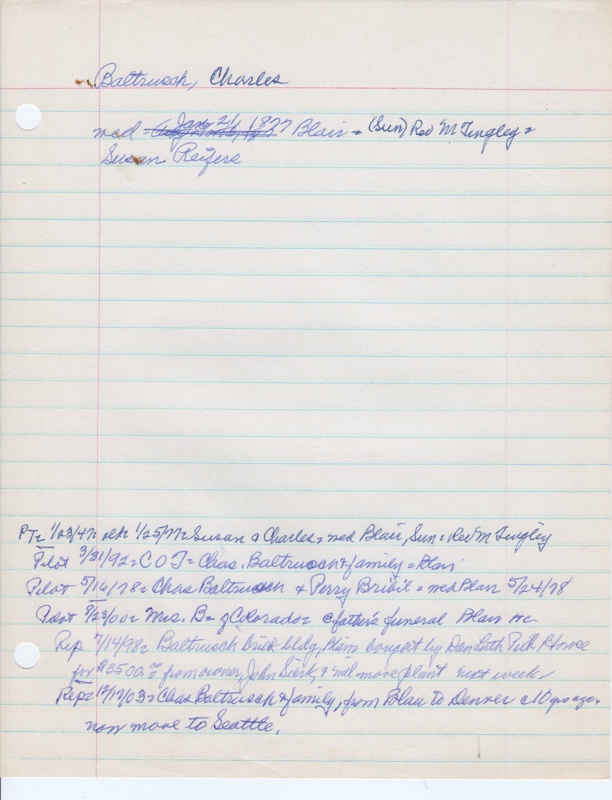 Baltrusch, Charles
med = Jan 21, 1877 Blair = (Sun) Rev M Tingley =
Susan Reifers
PT= 1/23/4 1/25/77= Susan & Charles = med Blair, Sun = Rev M Tingley
Pilot 3/31/92= C O T= Chas. Baltrusch & family = Blair
Pilot 5/16/78= Chas Baltrusch & Perry = med Blair 5/24/78
Pilot 8/23/00= Mrs. B= of Colorado= @ father's funeral Blair
Rep 7/14/98= Baltrusch brick bldg, Blair bought by Dan Luth Pub House
for $3500.00= from owner, John & will move plant next week
Rep= 12/17/03= Chas Baltrusch & family, from Blair to Denver c10 yrs ago,
now move to Seattle.